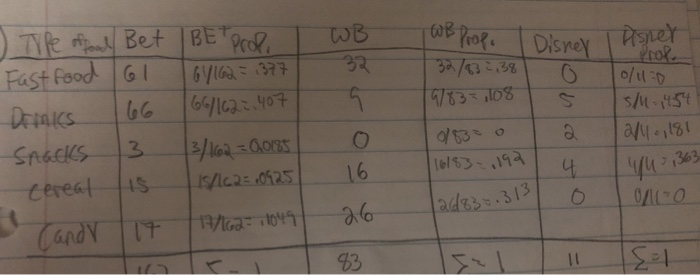 Type of food Bet BET Prop. WB WB Prop. Disney Disney Prop.
Fast Food 61 61/162=.377 32 32/83=.38 0 0/11=0
Drinks 66 66/162=.407 9 9/83=.108 5 5/11=.454
Snacks 3 3/162=0.0185 0 0/83=0 2 2/11=.181
Cereal 15 15/162=.0925 16 16/83=.192 4 4/11=.363
Candy 17 17/162=.1049 26 26/83=.313 0 0/11=0
162 83 Σ=1 11 Σ=1